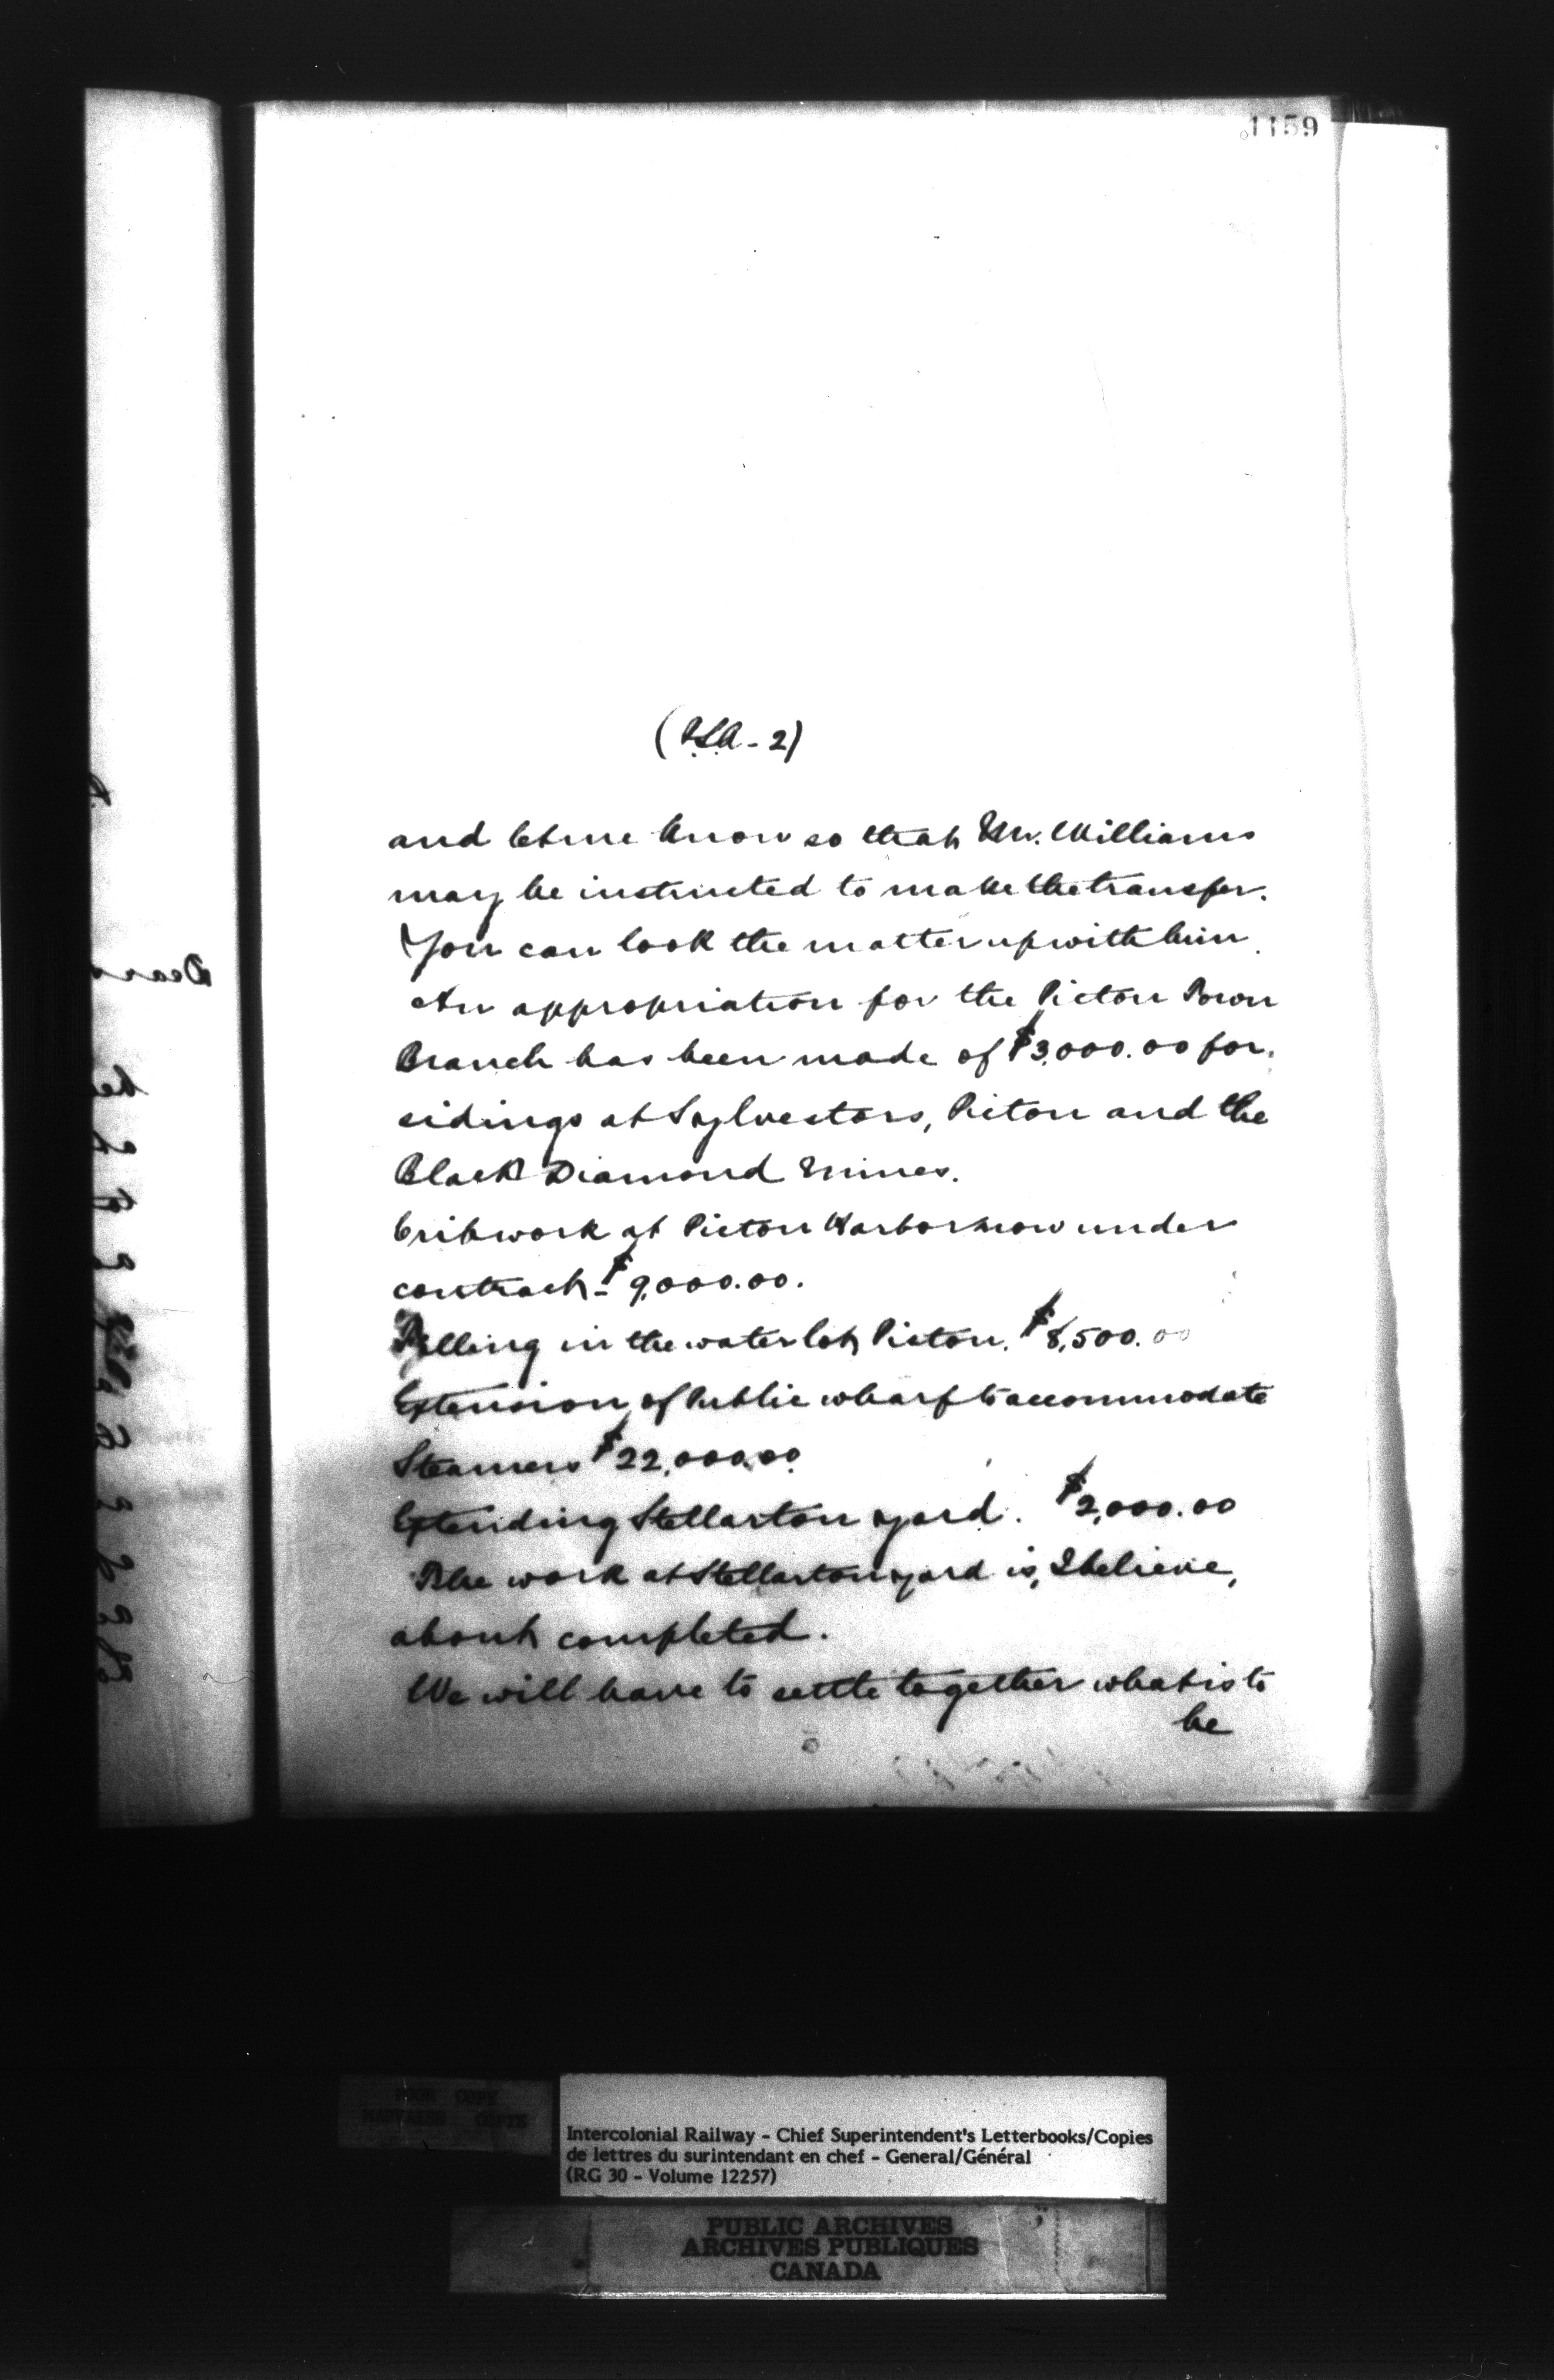 1159
(P.S.A. - 2)
and let me know so that Mr. Williams
may be instructed to make the transfer.
You can look the matter up with him.
An appropriation for the Pictou Town
Branch has been made of $3,000.00 for
sidings at Sylvesters, Pictou and the
Black Diamond Mines.
Cribwork at Pictou Harbor now under
contract - $9,000.00.
Filling in the water lot, Pictou. $8,500.00
Extension of Public wharf to accommodate
Steamers $22,000.00
Extending Stellarton yard. $2,000.00
The work at Stellarton yard is, I believe,
about completed.
We will have to settle together what is to
be
Dear
POOR COPY
MAUVAISE COPIE
Intercolonial Railway - Chief Superintendent's Letterbooks/Copies
de lettres du surintendant en chef - General/Général
(RG 30 - Volume 12257)
PUBLIC ARCHIVES
ARCHIVES PUBLIQUES
CANADA